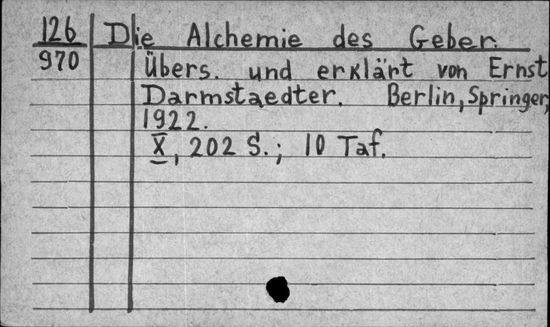 126 Die Alchemie des Geber.
970 Übers. und erklärt von Ernst
Darmstaedter. Berlin, Springer,
1922.
X, 202 S.; 10 Taf.